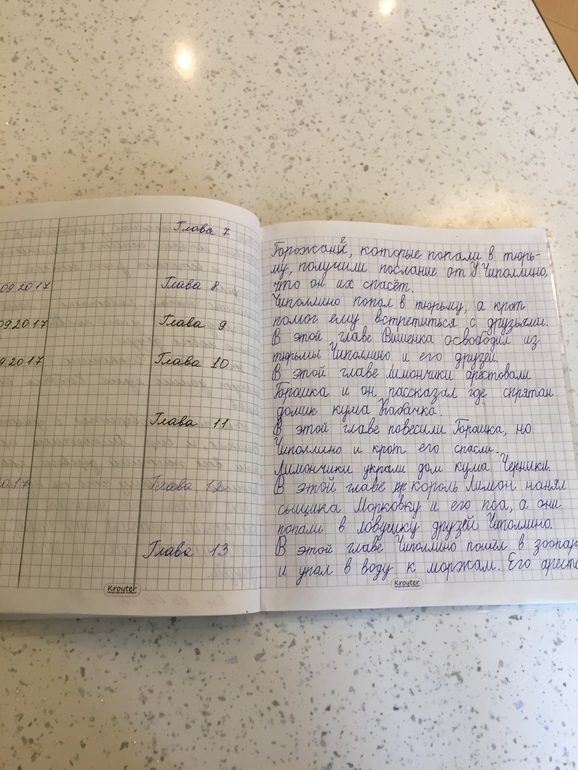 Глава 7
09.2017 Глава 8
09.2017 Глава 9
9.2017 Глава 10
Глава 11
0.17 Глава 12
Глава 13
Kroyter
Горожане, которые попали в тюрь-
му, получили послание от Чиполлино,
что он их спасёт.
Чиполлино попал в тюрьму, а крот
помог ему встретиться с друзьями.
В этой главе Вишенка освободил из
тюрьмы Чиполлино и его друзей.
В этой главе лимончики арестовали
Горошка и он рассказал где спрятан
домик кума
В этой главе повесили Горошка, но
Чиполлино и крот его спасли.
Лимончики украли дом кума Черники.
В этой главе король Лимон нанял
сыщика Морковку и его пса, а они
попали в ловушку друзей Чиполлино.
В этой главе Чиполлино пошёл в зоопар
и упал в воду к моржам. Его арест
Kroyter